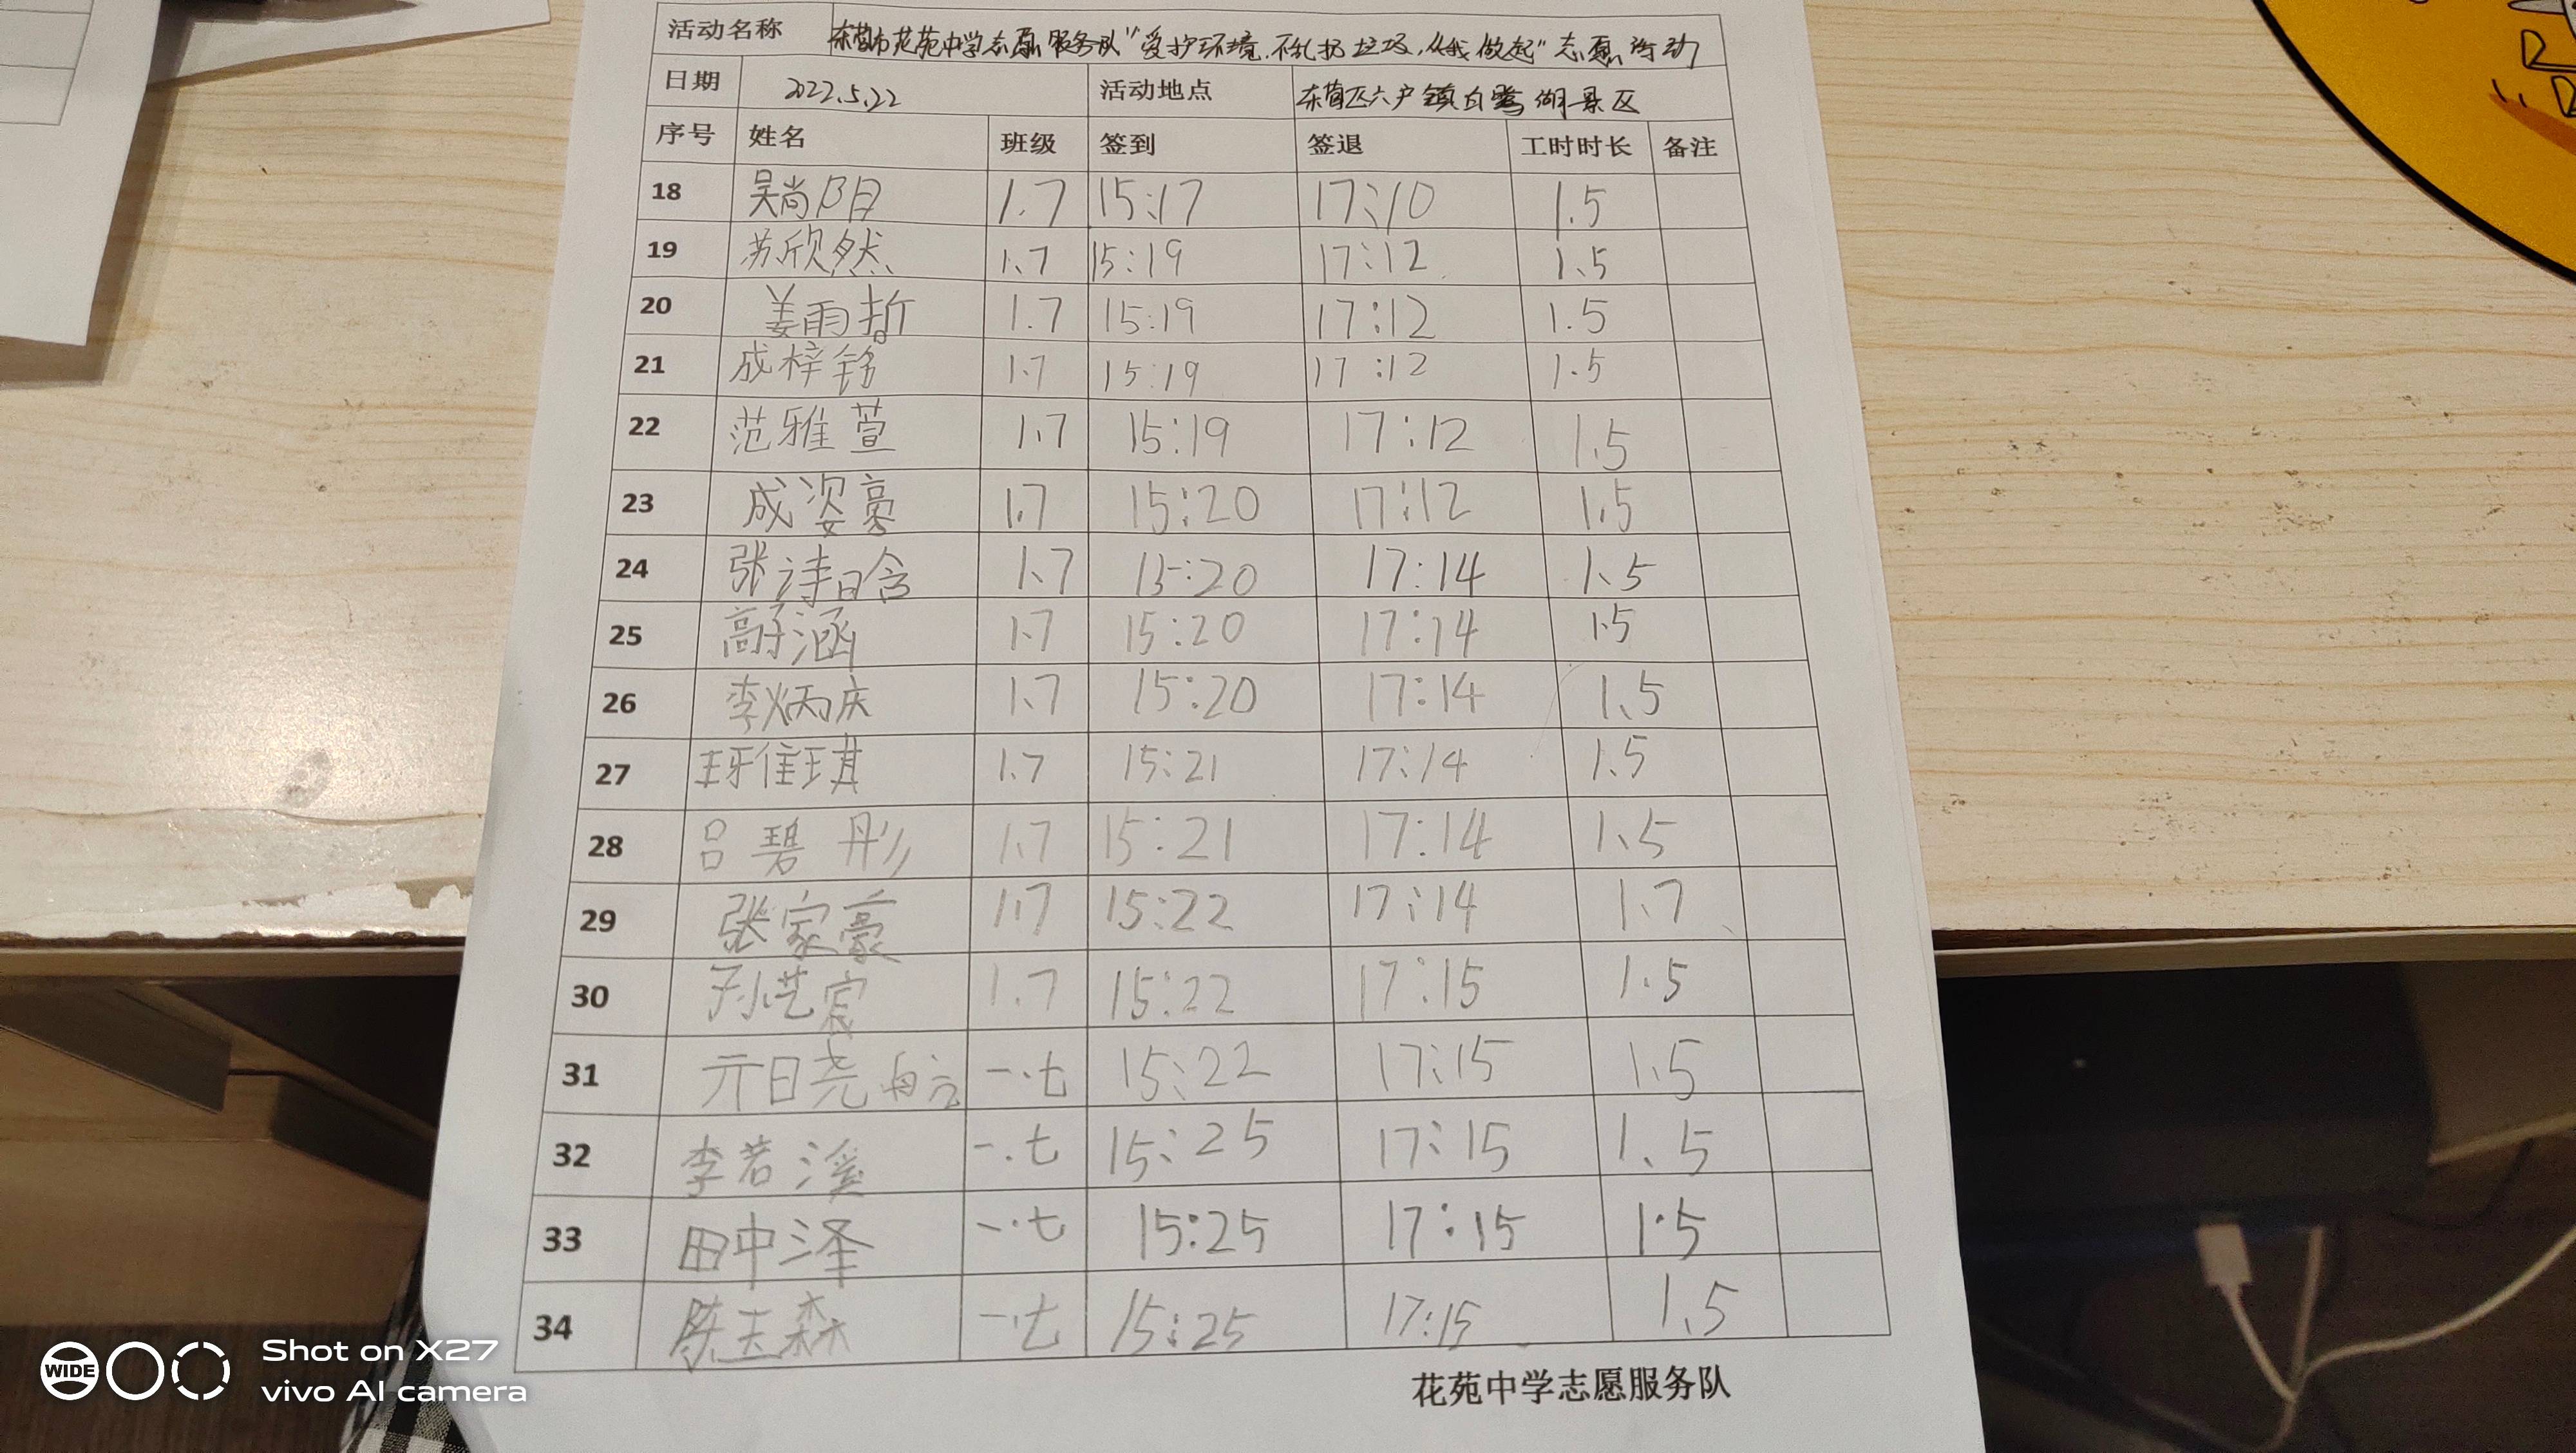 活动名称 东营市花苑中学志愿服务队"爱护环境.不乱扔垃圾,从我做起"志愿活动
日期 2022.5.22 活动地点 东营区六户镇白鹭湖景区
序号 姓名 班级 签到 签退 工时时长 备注
18 吴尚阳 1.7 15:17 17:10 1.5
19 苏欣然 1.7 15:19 17:12 1.5
20 姜雨哲 1.7 15:19 17:12 1.5
21 成梓铭 1.7 15:19 17:12 1.5
22 范雅萱 1.7 15:19 17:12 1.5
23 成姿 1.7 15:20 17:12 1.5
24 张诗晗 1.7 15:20 17:14 1.5
25 高子涵 1.7 15:20 17:14 1.5
26 李炳庆 1.7 15:20 17:14 1.5
27 王雅琪 1.7 15:21 17:14 1.5
28 吕碧彤 1.7 15:21 17:14 1.5
29 张家豪 1.7 15:22 17:14 1.7
30 孙艺宸 1.7 15:22 17:15 1.5
31 亓日尧航 一.七 15:22 17:15 1.5
32 李若溪 一.七 15:25 17:15 1.5
33 田中泽 一.七 15:25 17:15 1.5
34 陈玉森 一.七 15:25 17:15 1.5
花苑中学志愿服务队
WIDE
Shot on X27
vivo AI camera